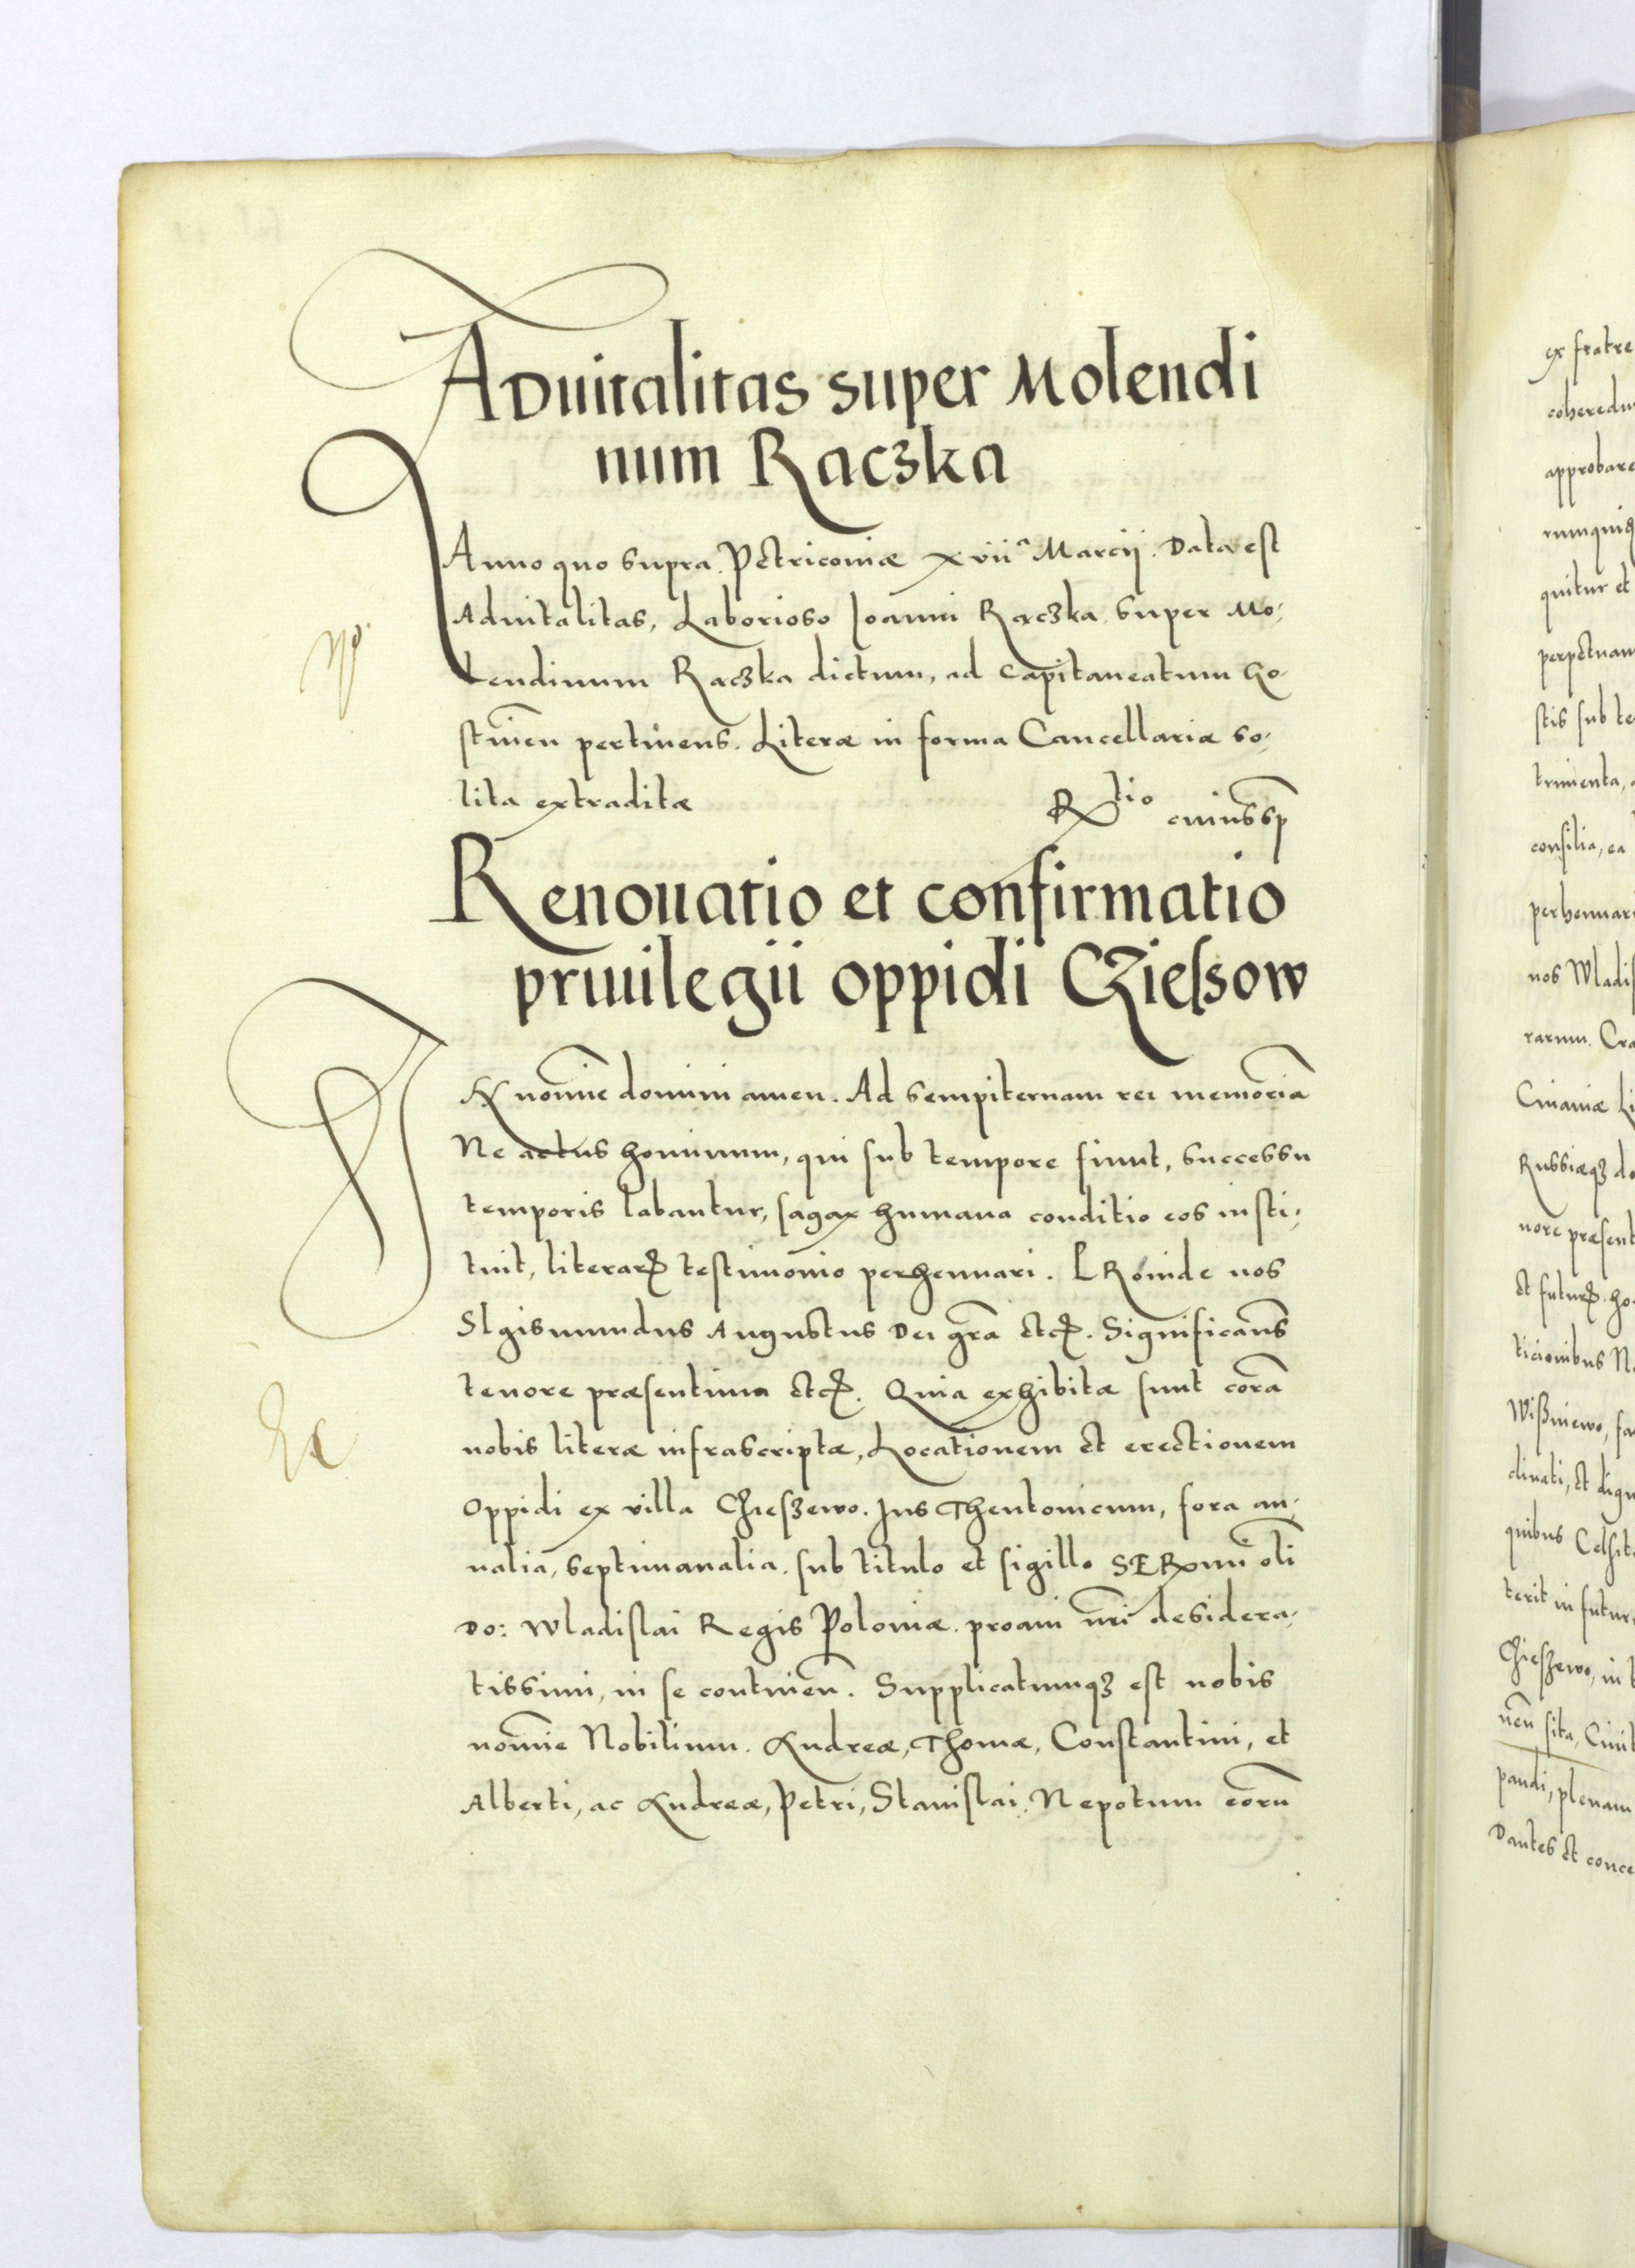 Aduitalitas super Molendi
num Raczka
Anno quo supra. Petricouiæ xviiª Marcij. Data est
Aduitalitas, Laborioso Ioanni Raczka super Mo-
lendinum Raczka dictum, ad Capitaneatum Go-
stinen pertinens. Literæ in forma Cancellariæ so-
lita extraditæ
R^tio cuiussp
Renouatio et confirmatio
priuilegii oppidi Cziessow
IN nomine domini amen. Ad sempiternam rei memoria
Ne actus hominum, qui sub tempore fiunt, successu
temporis labantur, sagax humana conditio eos insti-
tuit, literarꝝ testimonio perhennari. PRoinde nos
SIgismundus Augustus Dei gra etcꝭ. Significans
tenore præsentium etcꝭ. Quia exhibitæ sunt cora
nobis literæ infrascriptæ, Locationem et erectionem
Oppidi ex villa Chieszewo. Ius Theutonicum, fora an-
nalia, septimanalia. sub titulo et sigillo SERmi oli
Do: Wladislai Regis Poloniæ. proaui nri desidera-
tissimi, in se continen. Supplicatumqꝫ est nobis
nomine Nobilium. Andreæ, Thomæ, Constantini, et
Alberti, ac Andreæ, Petri, Stanislai, Nepotum eoru
ex fratre
approbare
quitur et
stis sub
consilia, ea
nos Wladis
rarum. Cra
Cuiauiæ
Russiæqꝫ
et futurꝝ
ticionibus
dinati, et dign
quibus
terit in futur
Chieszewo, in
nen sita,
pandi, plenam
Dantes et conce